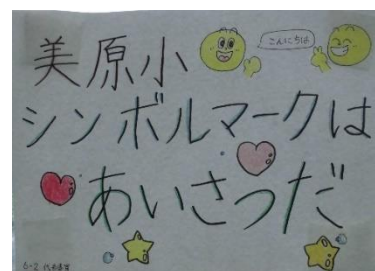 美原小
こんにちは
シンボルマークは
あいさつだ
6-2